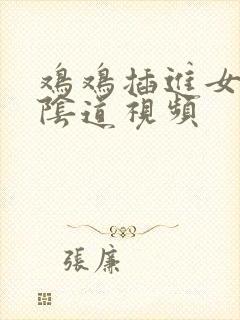 鸡鸡插進女
陰道視頻
張廉